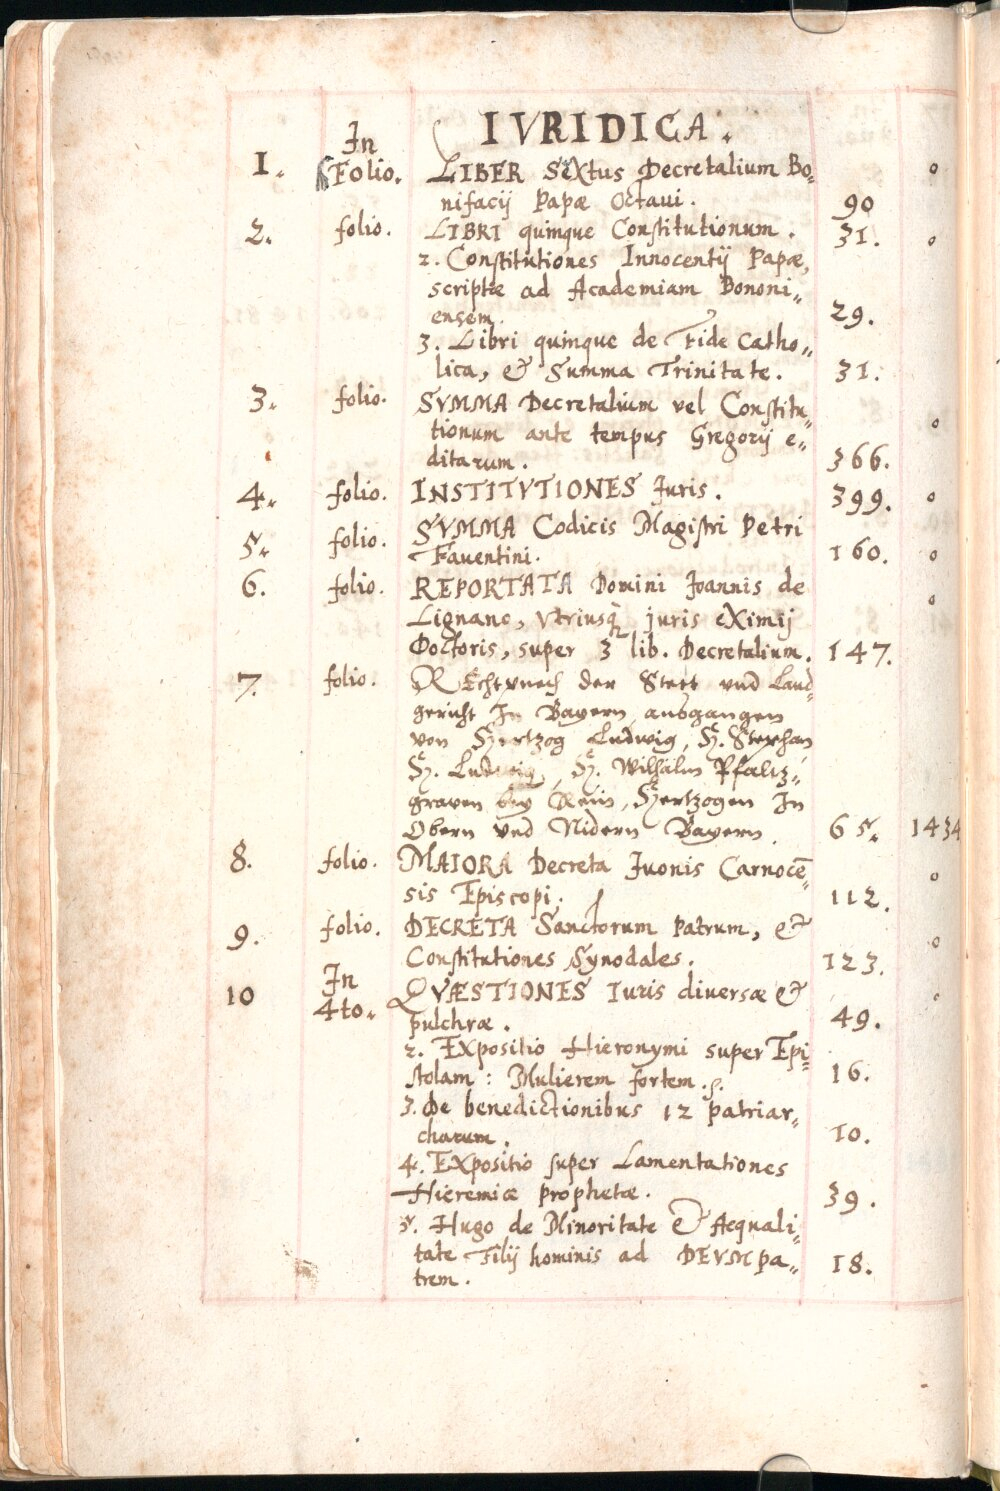 IVRIDICA.
In
1. Folio. LIBER Sextus Decretalium Bo„
nifacij Papæ Octaui. 90 o
2. folio. LIBRI quinque Constitutionum. 31. o
2. Constitutiones Innocentij Papæ,
scriptæ ad Academiam Bononi„
ensem. 29.
3. Libri quinque de Fide Catho„
lica, & Summa Trinitate. 31.
3. folio. SVMMA Decretalium vel Constitu„
tionum ante tempus Gregorij e„ o
ditarum. 366.
4. folio. INSTITVTIONES Juris. 399. o
5. folio. SVMMA Codicis Magistri Petri
Fauentini. 160. o
6. folio. REPORTATA Domini Joannis de o
Lignano, vtriusq juris eximij
Doctoris, super 3 lib. Decretalium. 147.
7. folio. der Stett vnd Land„
gericht In Bayern, ausgangen
von Hertzog Ludwig, H. Stephan
H. Ludwig, H. Wilhalm Pfaltz„
graven bey Rein, Hertzogen In
Obern vnd Nidern Bayern. 65. 1434
8. folio. MAIORA Decreta Juonis Carnocē„ o
sis Episcopi. 112.
9. folio. DECRETA Sanctorum Patrum, & o
Constitutiones Synodales. 123.
In
10 4to. QVÆSTIONES Iuris diuersæ & o
pulchræ. 49.
2. Expositio Hieronymi super Epi„
stolam: Mulierem fortem. 16.
3. De benedictionibus 12 patriar„
charum. 10.
4. Expositio super Lamentationes
Hieremiæ prophetæ. 39.
5. Hugo de Minoritate & Aequali„
tate Filij hominis ad DEVM pa„ 18.
trem.